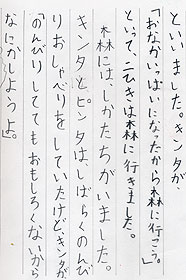 といいました。キンタが、
「おなかいっぱいになったから森に行こ。」
といって、二ひきは森に行きました。
森には、しかたちがいました。
キンタとピンタは、しばらくのんび
りおしゃべりをしていたけど、キンタが
「のんびりしててもおもしろくないから
なにかしようよ。」